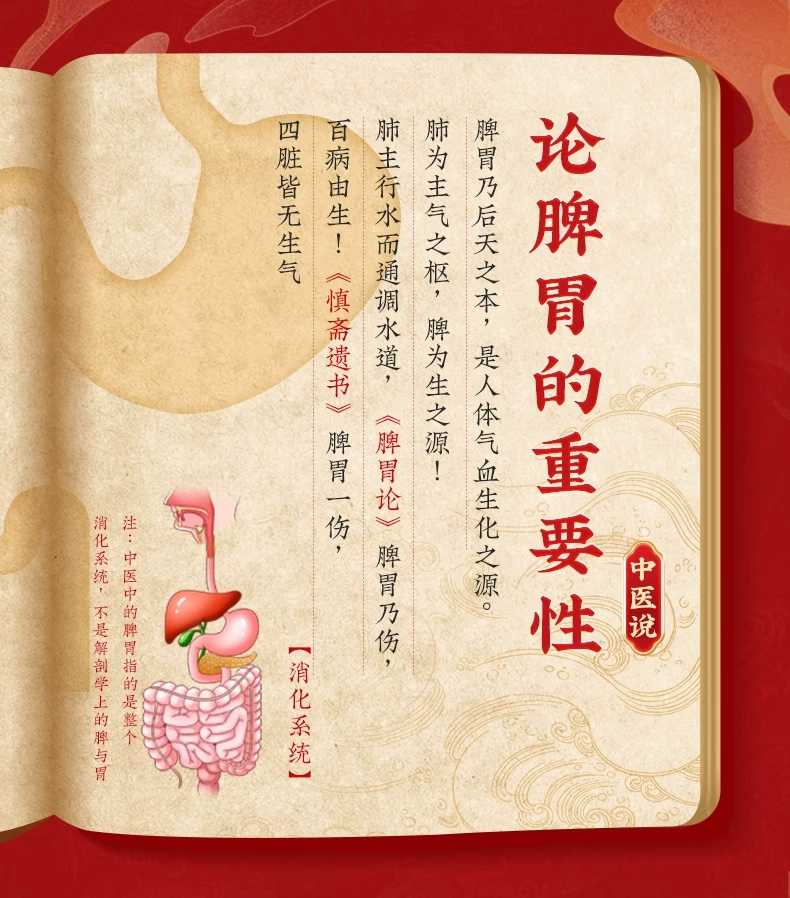 论脾胃的重要性
中医说
脾胃乃后天之本，是人体气血生化之源。
肺为主气之枢，脾为生之源！
肺主行水而通调水道，《脾胃论》脾胃乃伤，
百病由生！《慎斋遗书》脾胃一伤，
四脏皆无生气
【消化系统】
注：中医中的脾胃指的是整个
消化系统，不是解剖学上的脾与胃